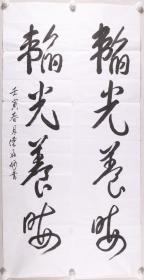 韬光养晦
韬光养晦
壬寅春月